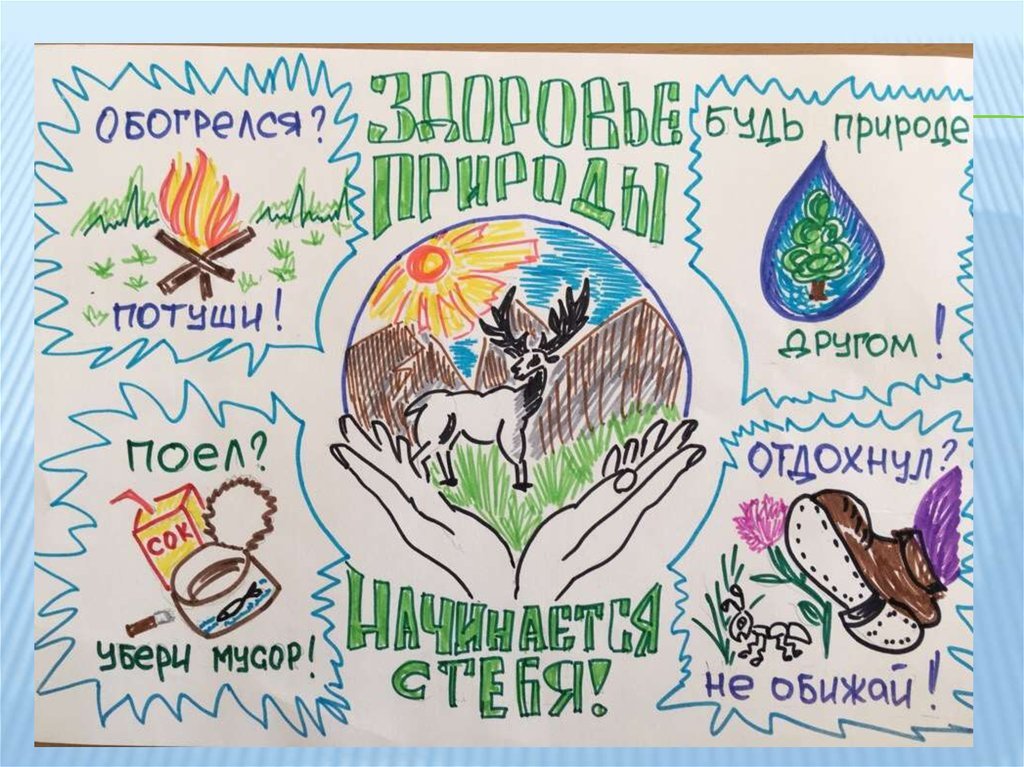 ЗДОРОВЬЕ
ПРИРОДЫ
НАЧИНАЕТСЯ
С ТЕБЯ!
ОБОГРЕЛСЯ?
ПОТУШИ!
БУДЬ природе
другом!
ПОЕЛ?
СОК
убери мусор!
ОТДОХНУЛ?
не обижай!